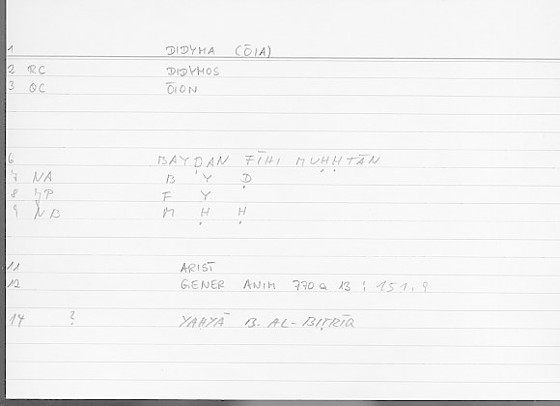 1 DIDYMA (ŌIA)
2 RC DIDYMOS
3 QC ŌION
6 BAYḌAN FĪHI MUḤḤTĀN
7 NA B Y Ḍ
8 JP F Y
9 NB M Ḥ Ḥ
11 ARIST
12 GENER ANIM 770 a 13 ; 151,9
14 ? YAḤYĀ B. AL-BIṬRĪQ